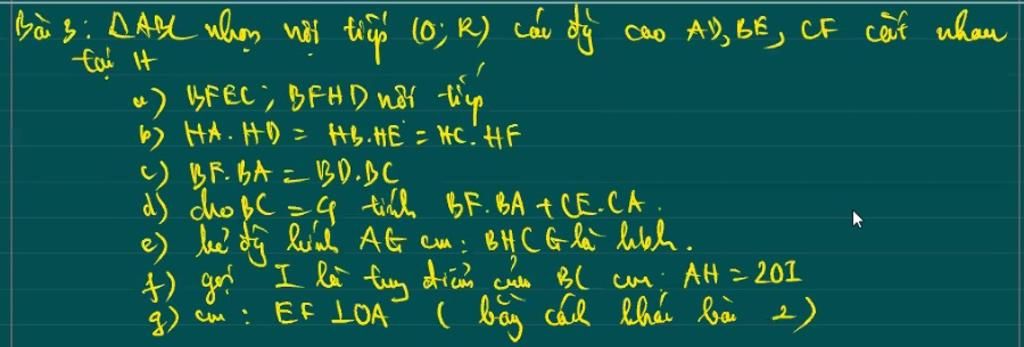 Bài 3: ΔABC nhọn nội tiếp (O; R) các đg cao AD, BE, CF cắt nhau
tại H
a) BFEC; BFHD nội tiếp
b) HA.HD = HB.HE = HC.HF
c) BF.BA = BD.BC
d) cho BC = 9 tính BF.BA + CE.CA.
e) kẻ đg kính AG cm: BHCG là hbh.
f) gọi I là trung điểm của BC cm: AH = 2OI
g) cm: EF ⊥ OA ( bằng cách khác bài 2)